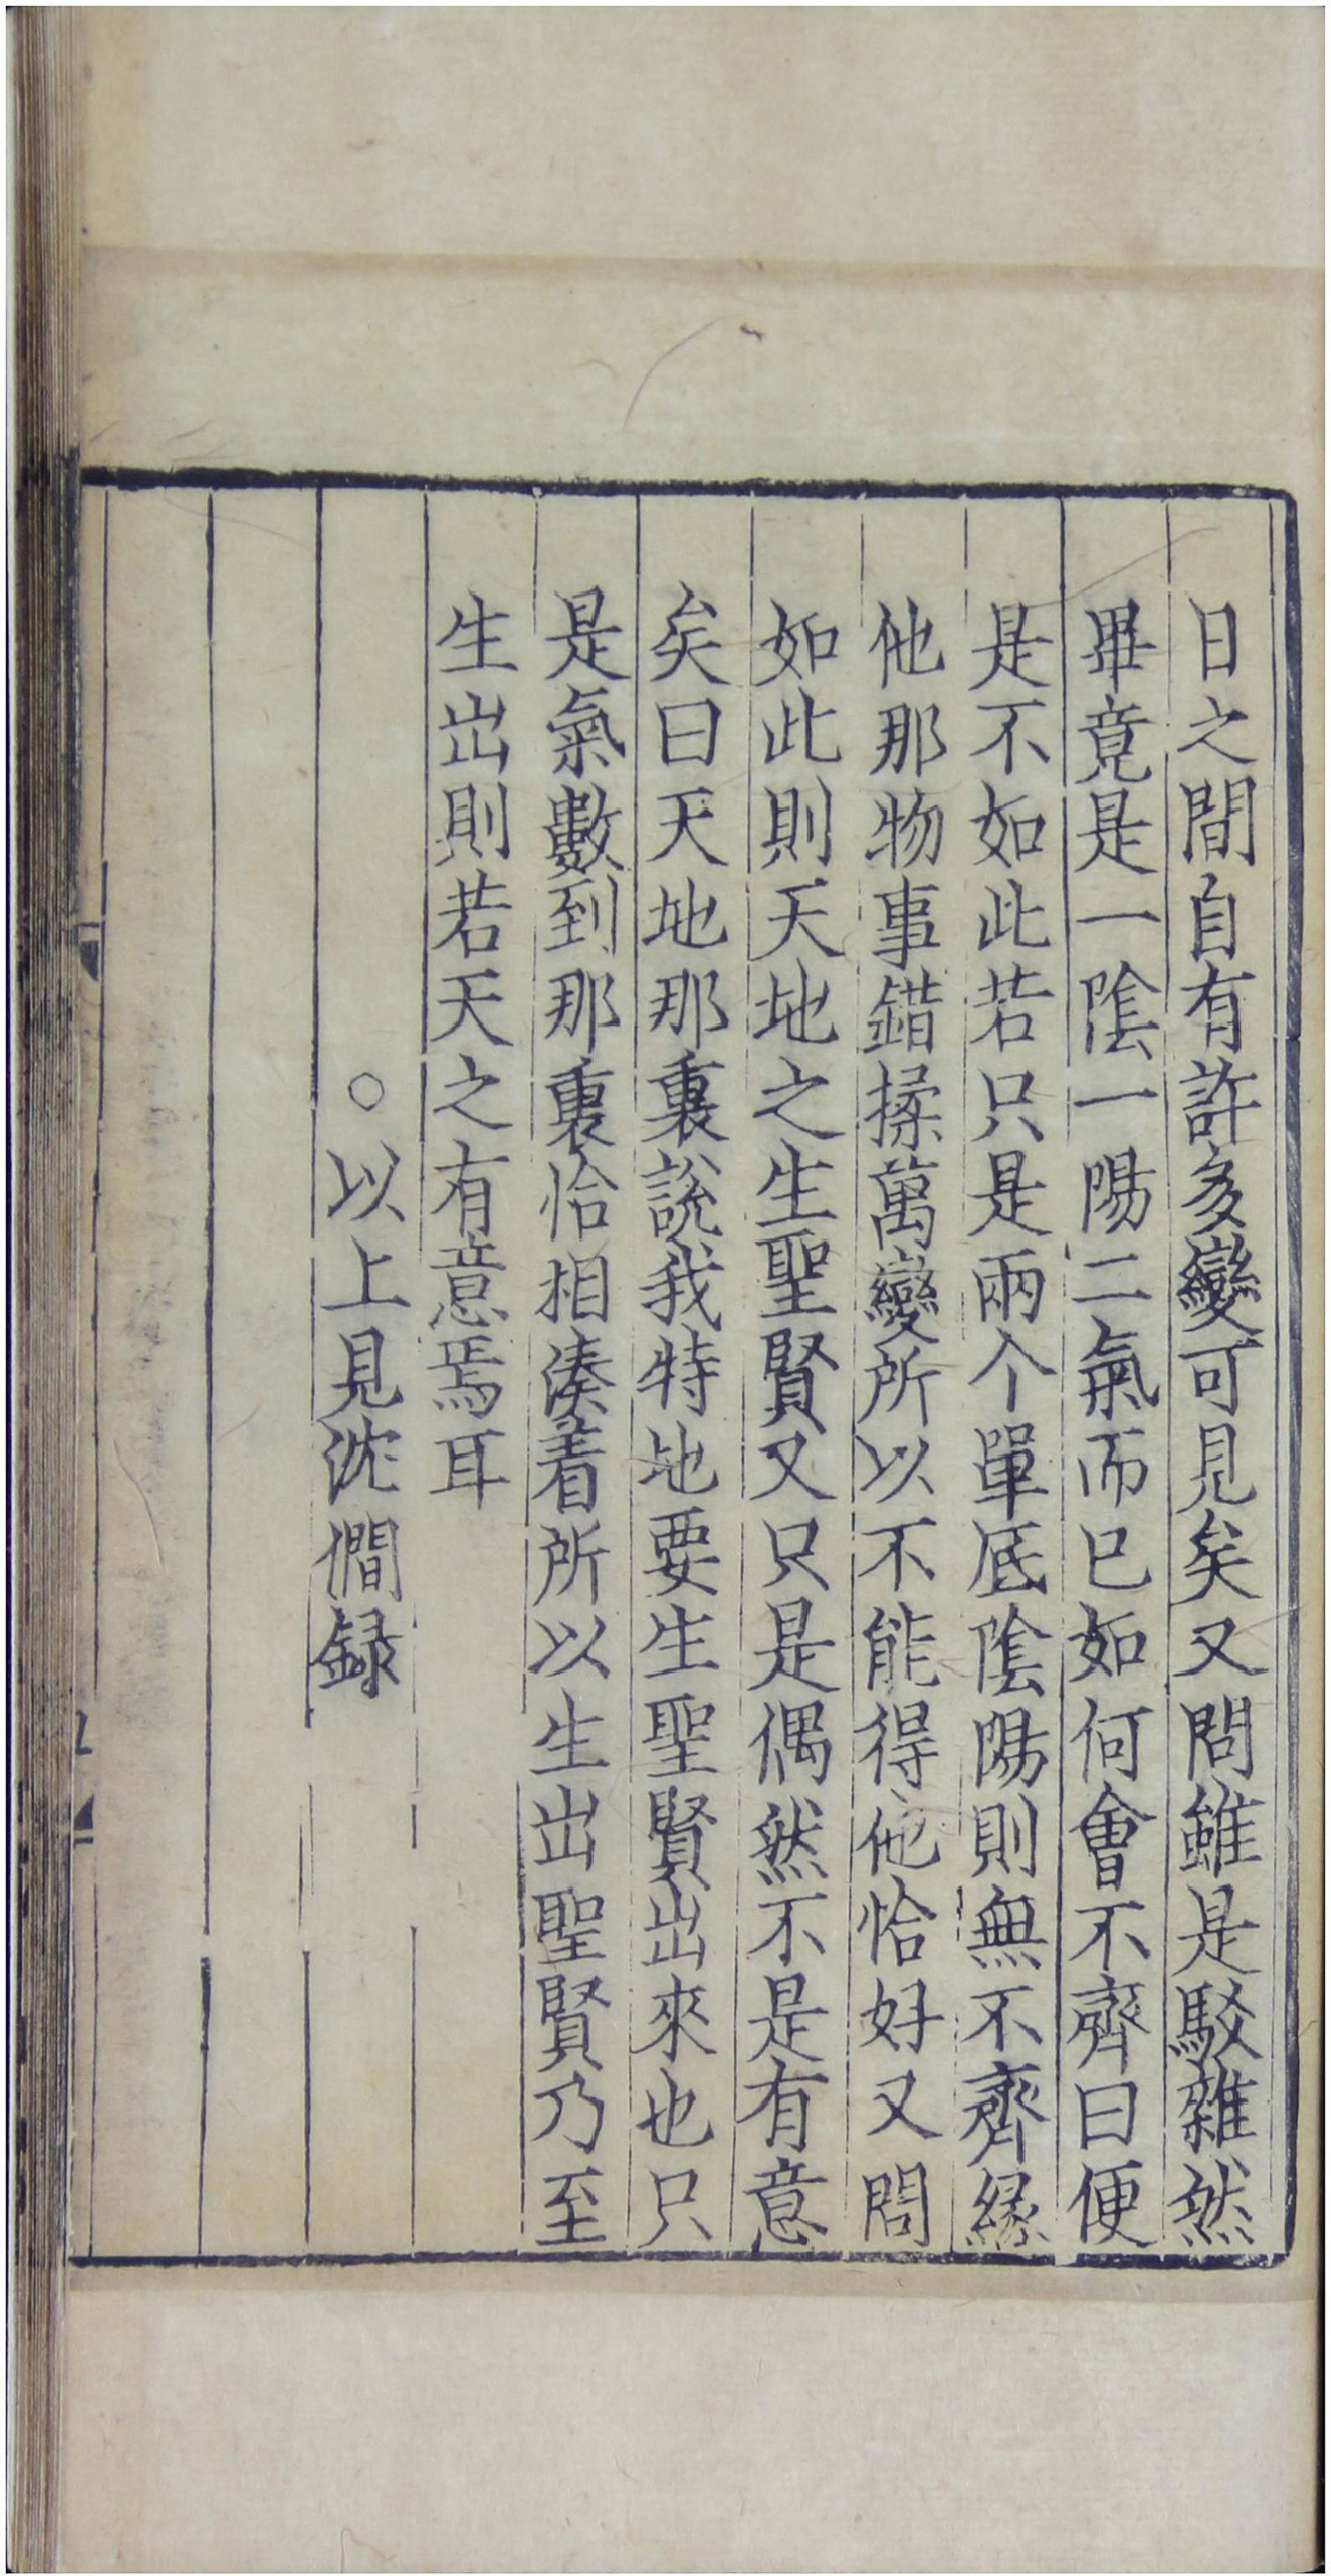 日之間自有許多變可見矣又問雖是駁雜然
畢竟是一陰一陽二氣而已如何會不齊曰便
是不如此若只是兩个單底陰陽則無不齊緣
他那物事錯揉萬變所以不能得他恰好又問
如此則天地之生聖賢又只是偶然不是有意
矣曰天地那裏說我特地要生聖賢出來也只
是氣數到那裏恰相湊着所以生出聖賢乃至
生出則若天之有意焉耳
○以上見沈僩録